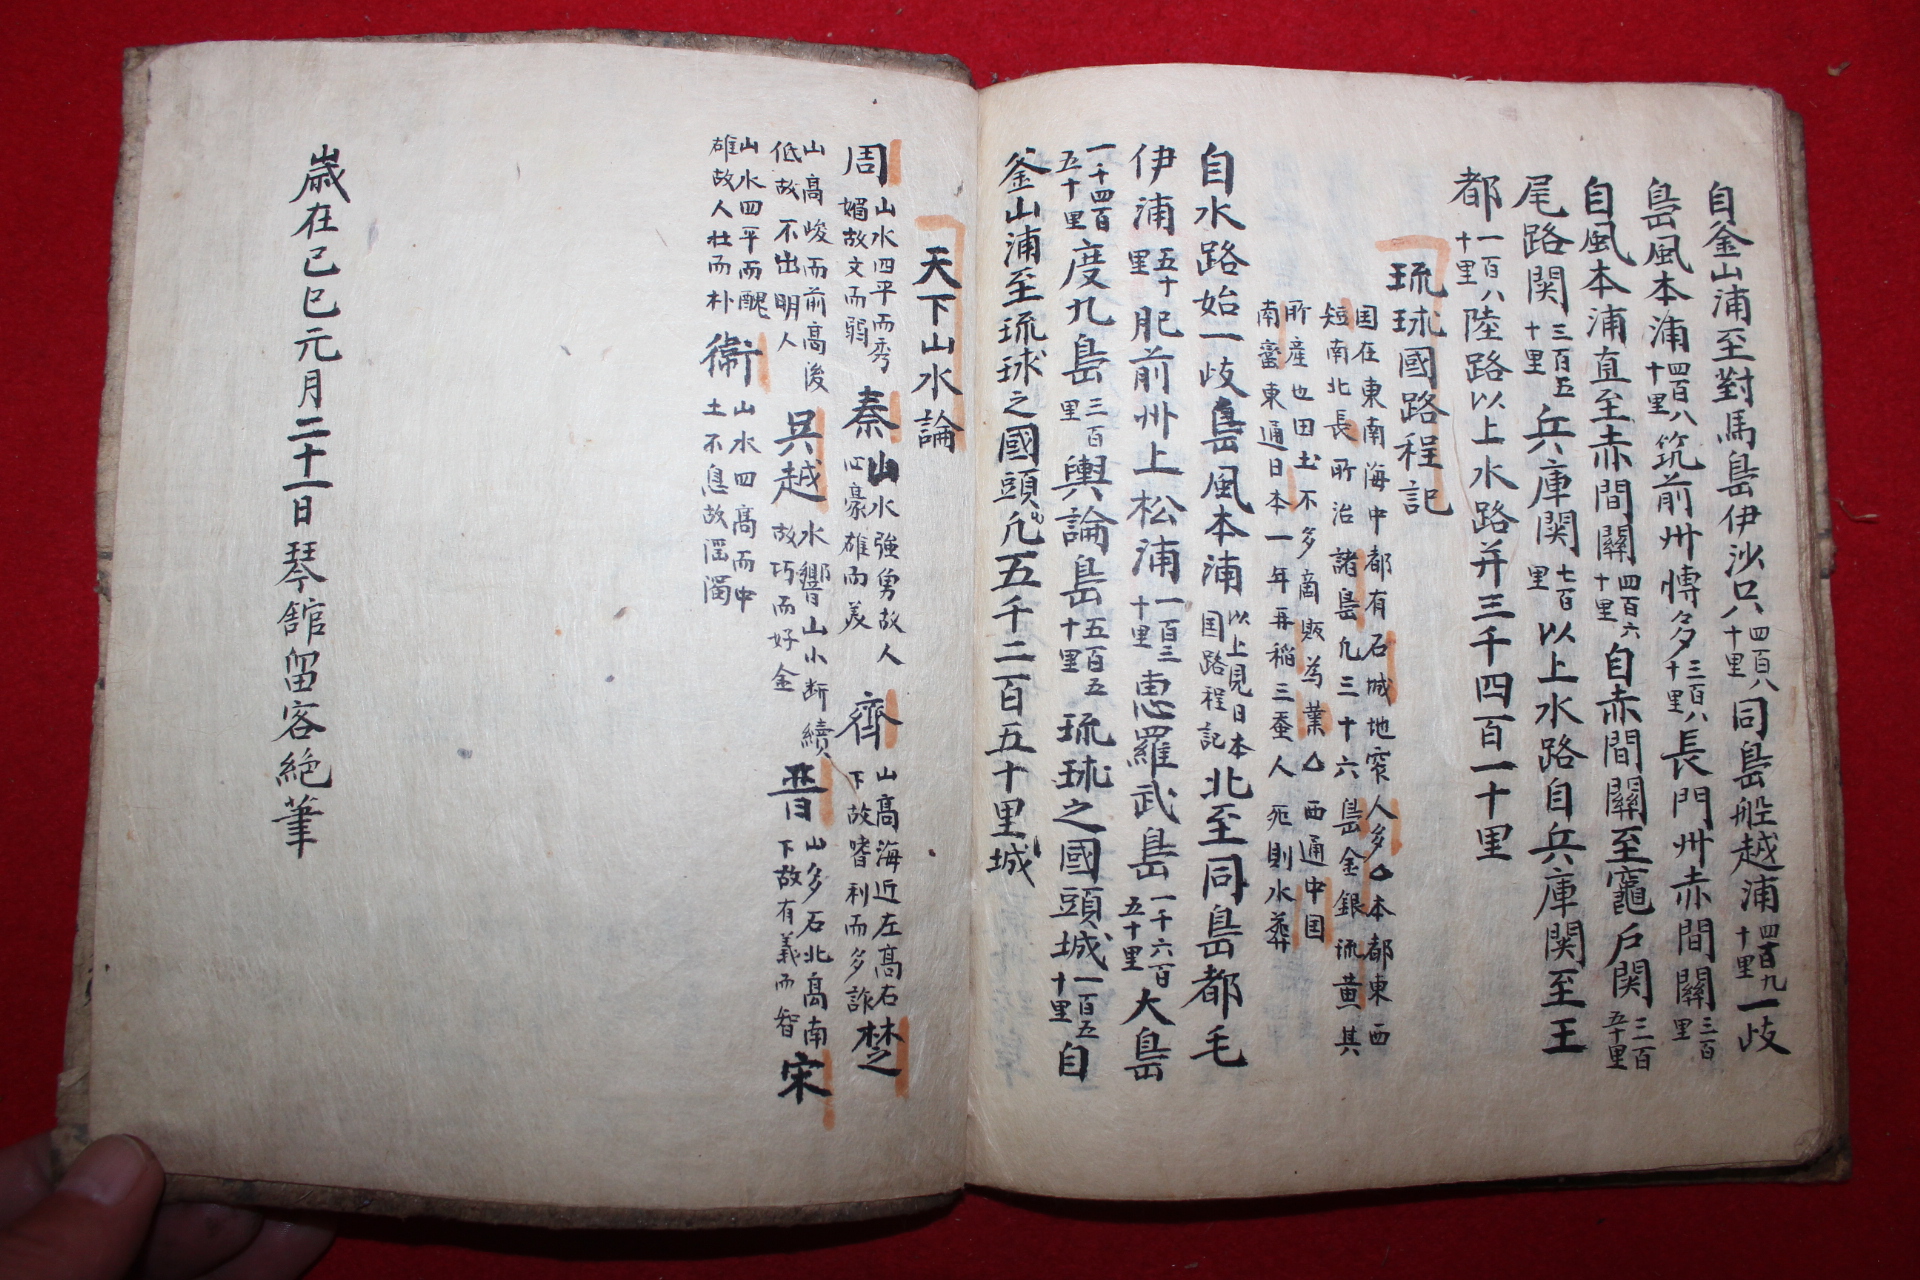 自釜山浦至對馬島伊沙只八四百八十里同島船越浦四百九十里一歧
島風本浦四百八十里筑前州愽多三百八十里長門州赤間關三百里
自風本浦直至赤間關四百六十里自赤間關至竈戶関三百五十里
尾路関三百五十里兵庫関七百里以上水路自兵庫関至王
都一百八十里陸路以上水路并三千四百一十里
琉球國路程記
国在東南海中都有石城地窄人多△本都東西
短南北長所治諸島凢三十六島金銀琉黄其
所産也田土不多商販為業△西通中国
南蠻東通日本一年再稲三蚕人死則水葬
自水路始一歧島風本浦以上見日本国路程記北至同島都毛
伊浦五十里肥前州上松浦一百三十里惠羅武島一千六百五十里大島
一千四百五十里度九島三百里輿論島五百五十里琉球之國頭城一百五十里自
釜山浦至琉球之國頭凢五千二百五十里城
天下山水論
周山水四平而秀媚故文而弱秦山水強勇故人心豪雄而美齊山高海近左高右下故嗜利而多詐楚
山高峻而前高後低故不出明人吳越水響山小断續故巧而好金晋山多石北高南下故有義而智宋
山水四平而醜雄故人壮而朴衛山水四高而中土不息故淫濁
歳在己巳元月二十一日琴舘留客絶筆